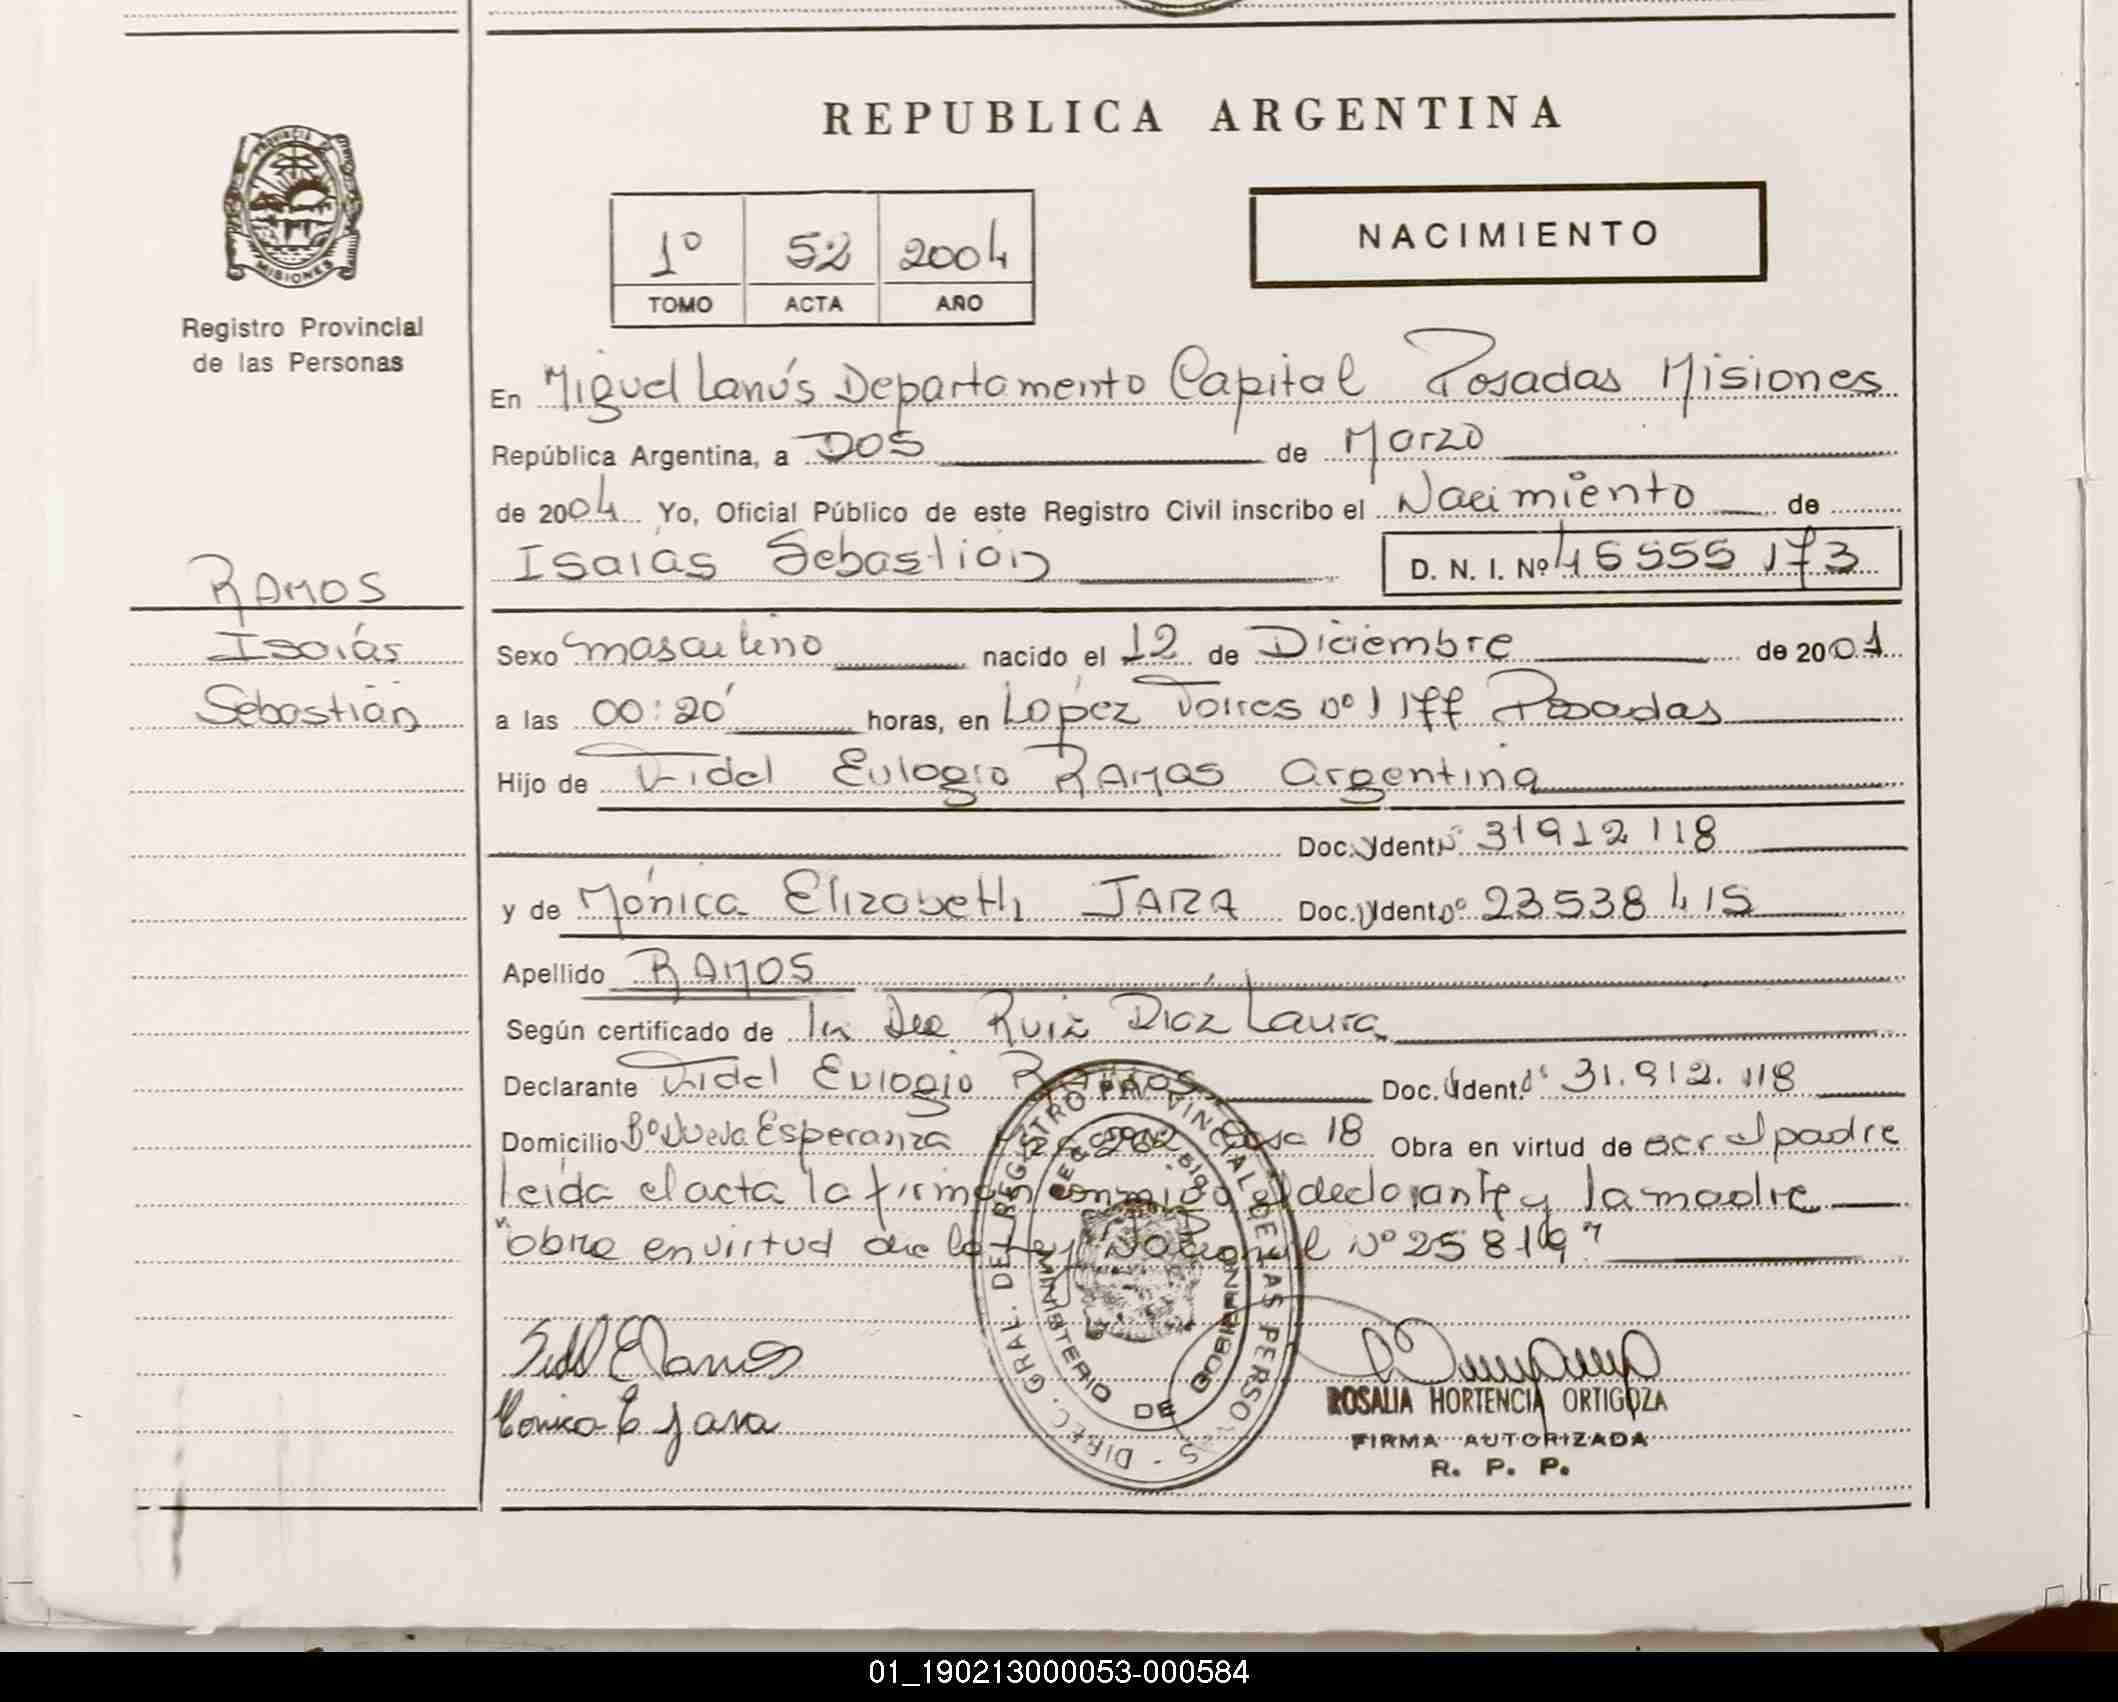 REPUBLICA ARGENTINA
PROVINCIA DE
MISIONES
Registro Provincial
de las Personas
1º 52 2004
TOMO ACTA AÑO
NACIMIENTO
En Miguel Lanús Departamento Capital Posadas Misiones
República Argentina, a DOS de Marzo
de 2004 Yo, Oficial Público de este Registro Civil inscribo el Nacimiento de
Isaías Sebastián D. N. I. Nº 45555173
RAMOS
Isaías
Sebastián
Sexo masculino nacido el 12 de Diciembre de 2001
a las 00:20' horas, en Lopez Torres nº 1177 Posadas
Hijo de Fidel Eulogio RAMOS Argentina
Doc. Ydent Nº 31912118
y de Mónica Elizabeth JARA Doc. Ydent Nº 23538415
Apellido RAMOS
Según certificado de Ruiz Díaz Laura
Declarante Fidel Eulogio RAMOS Doc. Ydent. Nº 31.912.118
Domicilio Bº Nueva Esperanza Casa 18 Obra en virtud de ser el padre
leída el acta la firman conmigo el declarante y la madre
"obra en virtud de la Ley Nacional Nº 25819"
DIREC. GRAL. DEL REGISTRO PROVINCIAL DE LAS PERSONAS
MINISTERIO DE GOBIERNO
Fidel E Ramos
Monica E Jara
ROSALIA HORTENCIA ORTIGOZA
FIRMA AUTORIZADA
R. P. P.
01_190213000053-000584